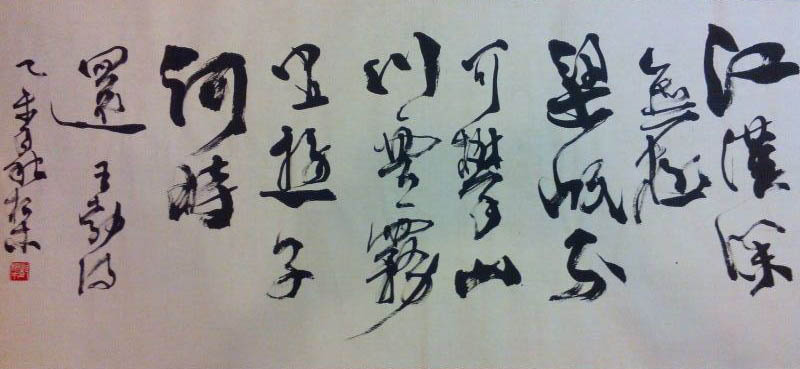 江漢深
無極
梁岷不
可攀山
川雲霧
里遊子
何時
還 王勃詩
乙未